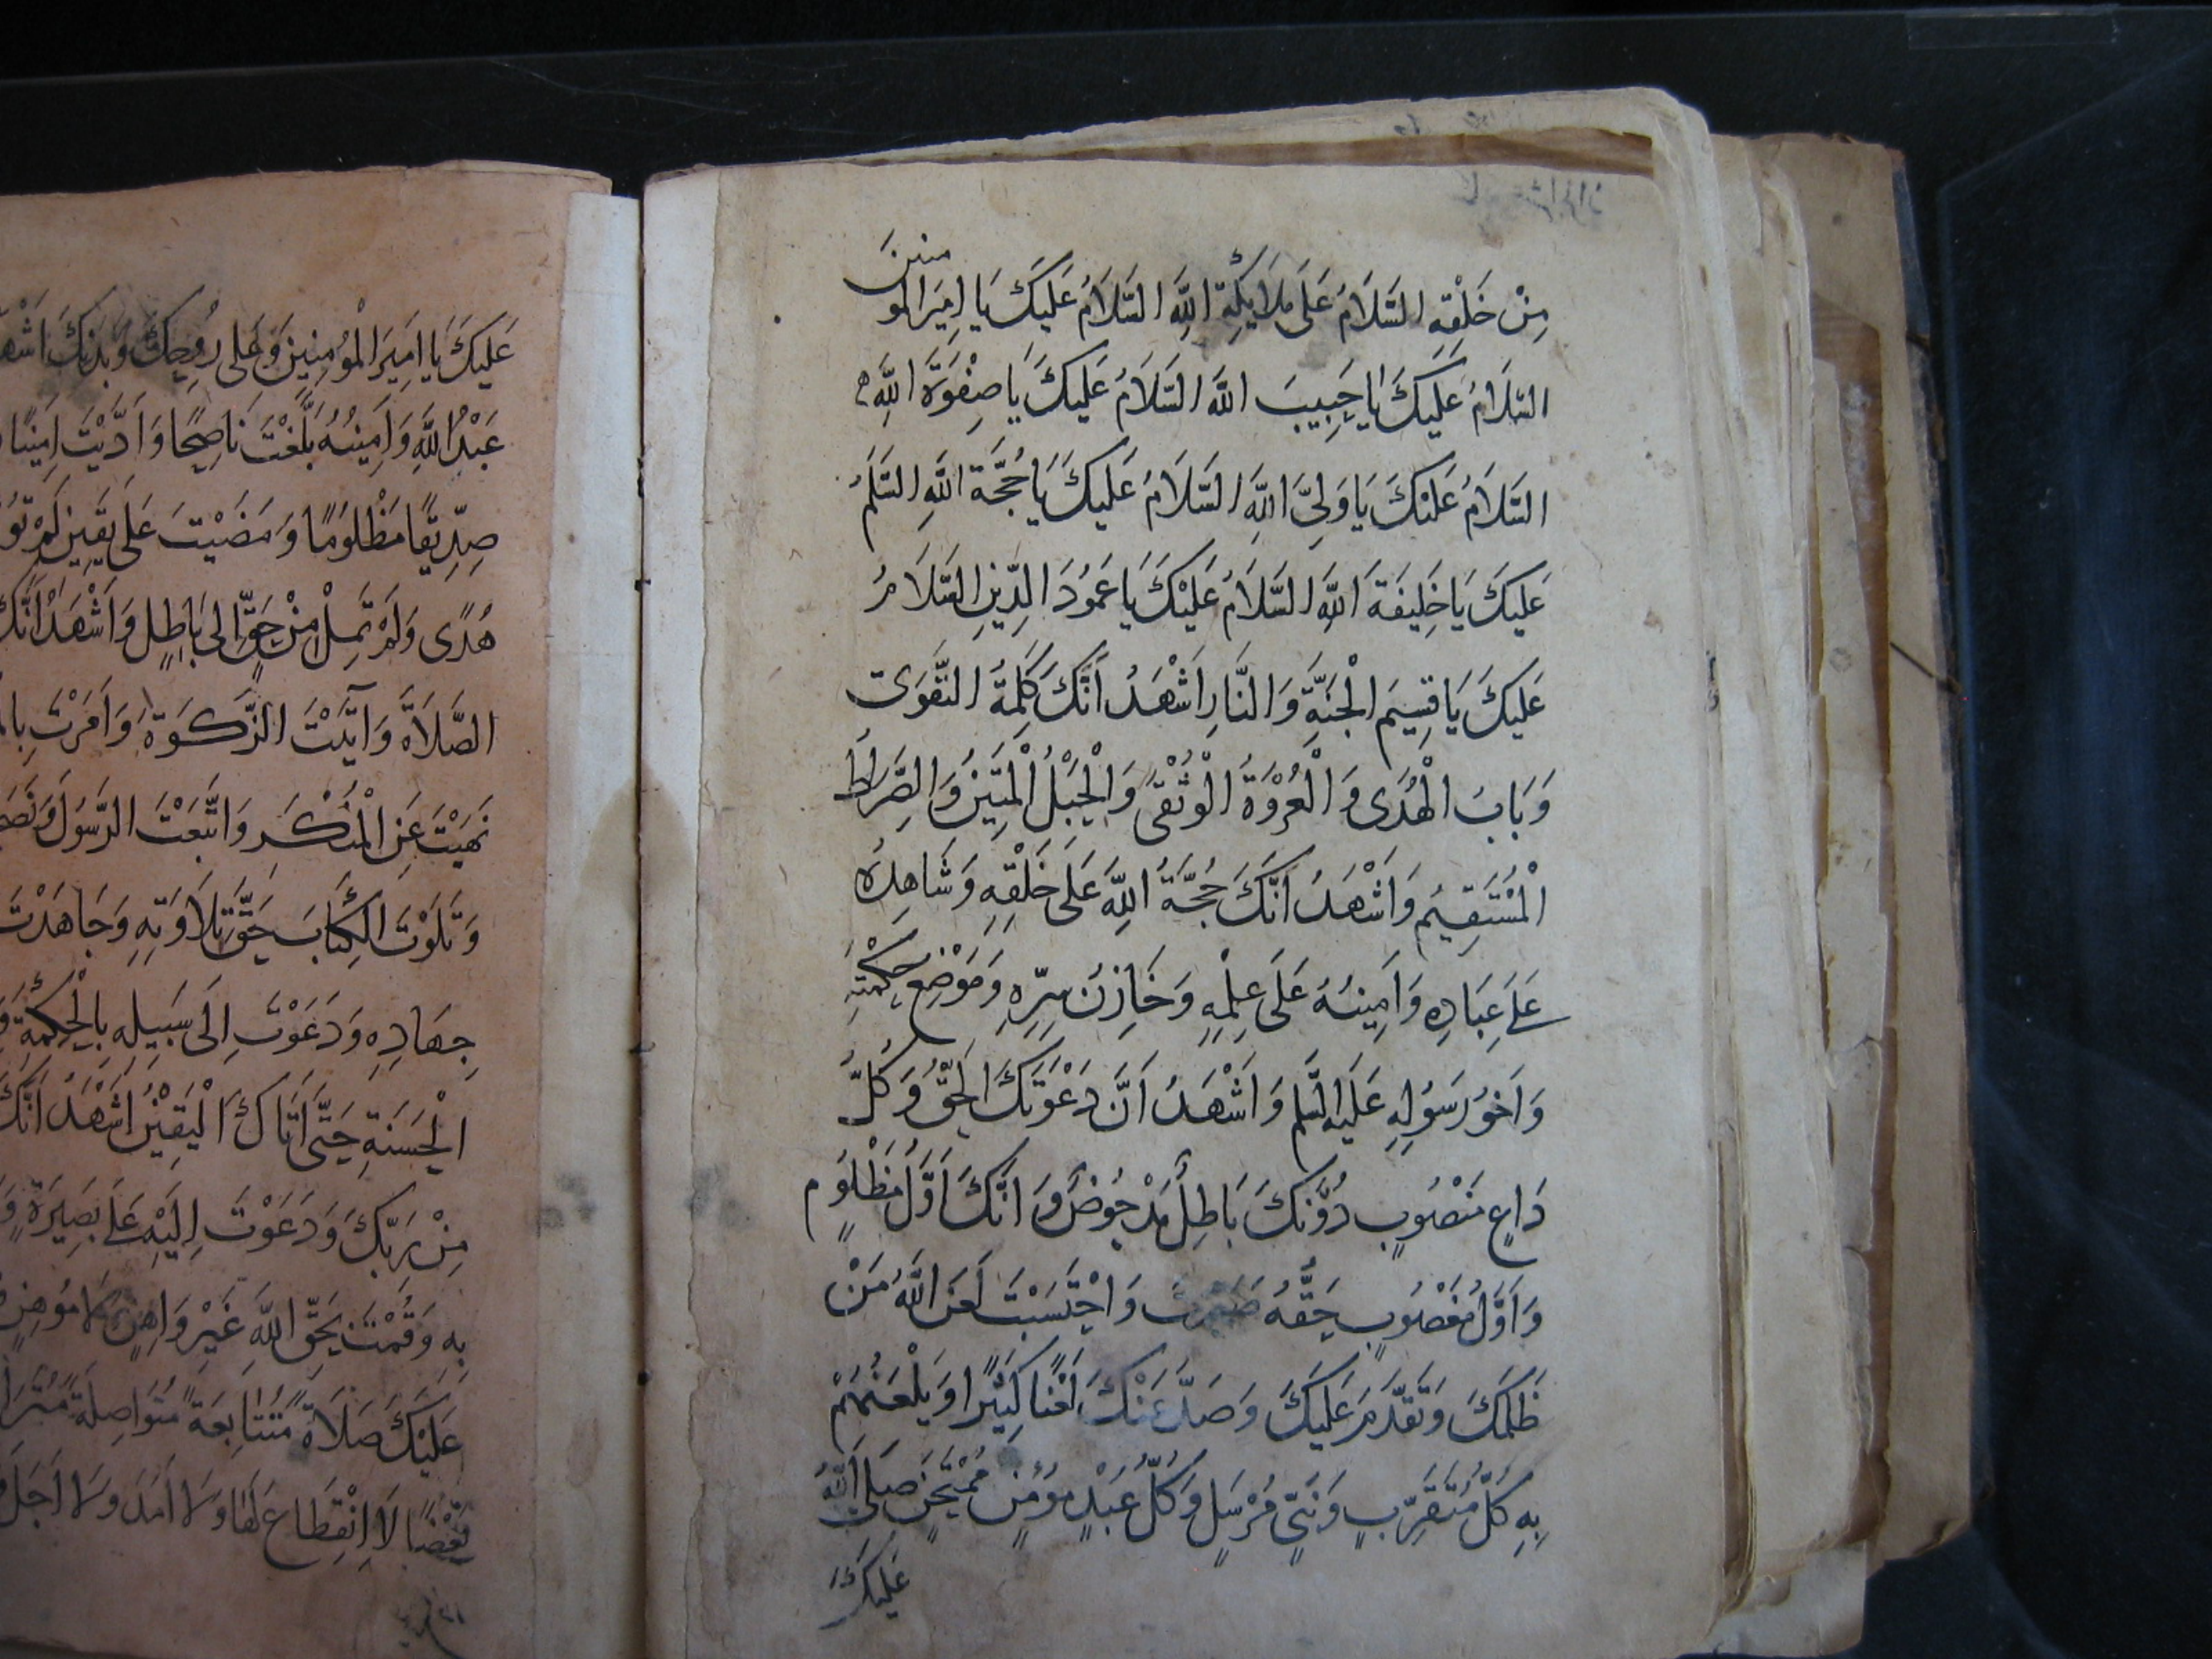 مِنْ خَلْقِهِ السَّلَامُ عَلَى مَلَايِكَةِ اللهِ السَّلَامُ عَلَيْكَ يَا امِيَرالمومنينَ
السَّلَامُ عَلَيكَ يَا حَبِيبَ اللهِ السَّلَامُ عَلَيكَ يَا صِفْوَةَ اللهِ
السَّلَامُ عَلَيْكَ يَا وَلِيَّ اللهِ السَّلَامُ عَلَيكَ يَا حُجَّةَ اللهِ السَّلَمُ
عَلَيكَ يَا خَلِيفَةَ اللهِ السَّلَامُ عَلَيْكَ يَا عَمُودَ الدِّينِ السَّلَامُ
عَلَيكَ يَا قِسِيمَ الْجَنَّةِ وَالنَّارِ اَشْهَدُ اَنَّكَ كَلِمَةُ التَّقْوَى
وَبَابُ الْهُدَى وَالْعُرْوَةُ الْوُثْقَى وَالْحَبْلُ الْمَتِينُ وَالصِّرَاطُ
الْمُسْتَقِيمُ وَاَشْهَدُ اَنَّكَ حُجَّةُ اللهِ عَلَى خَلْقِهِ وَشَاهِدُهُ
عَلَى عِبَادِهِ وَاَمِينُهُ عَلَى عِلْمِهِ وَخَازِنُ سِرِّهِ وَمَوْضِع حِكْمَتِهِ
وَاَخُو رَسُولِهِ عَلَيهِ السّلم وَاَشْهَدُ اَنَّ دَعْوَتَكَ الْحَقُّ وَكُلُّ
دَاعٍ مَنْصُوبٍ دُوْنَكَ بَاطِلٌ مَدْحُوضٌ وَاَنَّكَ اَوَّلُ مَظْلُومٍ
وَاَوَّلُ مَغْصُوبٍ حَقُّهُ وَاحْتَسَبْتَ لَعَنَ اللهُ مَنْ
ظَلَمَكَ وَتَقَدَّمَ عَلَيكَ وَصَدَّ عَنْكَ لَعْنًا كَثِيْرًا وَيَلْعَنُهُمْ
بِهِ كُلُّ مُتَقَرِّبٍ وَنَبِيٍّ مُرْسَلٍ وَكُلُّ عَبْدٍ مُؤْمِنٍ مُمْتَحَنٍ صَلَى اللهُ
عَلَيكَ
عَلَيكَ يَا اَمِيَر الْمُؤْمِنِينَ وَعَلَى رُوحِكَ وَبَدَنِكَ
عَبْدُ اللهِ وَاَمِينُهُ بَلَّغْتَ نَاصِحًا وَاَدَّيْتَ اَمِينًا
صِدِّيقًا مَظْلُومًا وَمَضَيْتَ عَلَى يَقِينٍ لَمْ
هُدًى وَلَمْ تَمِلْ مِنْ حَقٍّ اِلى بَاطِلٍ وَاَشْهَدُ اَنَّكَ
الصَّلَاةَ وَآتَيْتَ الزَّكَوةَ وَاَمَرْتَ
نَهَيْتَ عَنِ الْمُنْكَرِ وَاتَّبَعْتَ الرَّسُولَ
وَتَلَوْتَ الْكِتَابَ حَقَّ تِلَاوَتِهِ وَجَاهَدْتَ
جِهَادِهِ وَدَعَوْتَ اِلَى سَبِيلِهِ بِالْحِكْمَةِ
الْحَسَنَةِ حَتَّى اَتَاكَ الْيَقِيْنُ اَشْهَدُ اَنَّكَ
مِنْ رَبِّكَ وَدَعَوْتَ اِلَيْهِ عَلَى بَصِيرَةٍ
بِهِ وَقُمْتَ بِحَقِّ اللهِ غَيْرَ وَاهِنٍ وَلَا مُوهِنٍ
عَلَيْكَ صَلَاةً مُتَتَابِعَةً مُتَوَاصِلَةً
بَعْضًا لَا اِنْقِطَاعَ لَهَا وَلَا اَمَدَ وَلَا اَجَلَ